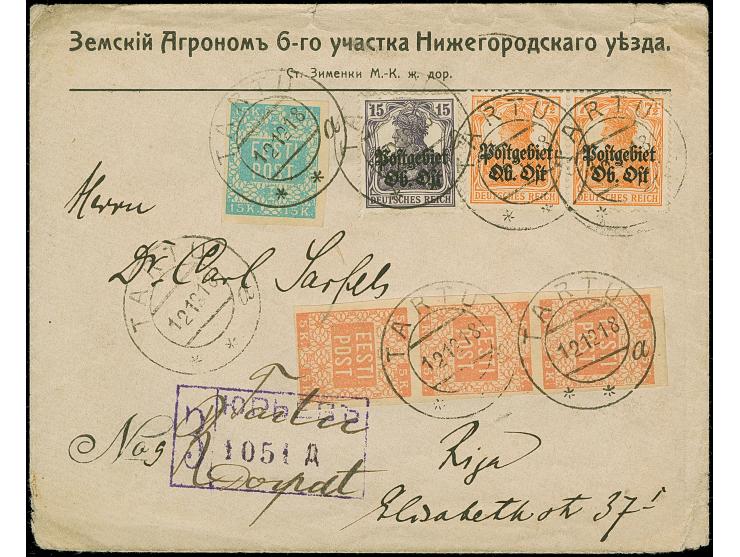 Земскій Агрономъ 6-го участка Нижегородскаго уѣзда.
Ст. Зименки М.-К. ж. дор.
15 K. 15 K.
EESTI
POST
15 K. 15 K.
TARTU
12 12 18
a
15 15
Postgebiet
Ob. Ost
DEUTSCHES REICH
TARTU
7½
Postgebiet
Ob. Ost
DEUTSCHES REICH
TARTU
7½
Postgebiet
Ob. Ost
DEUTSCHES REICH
TARTU
Herrn
Dr. Carl
TARTU
12 12 18
a
5 K
EESTI
POST
5 K
EESTI
POST
5 K
EESTI
POST
TARTU
12 12 18
TARTU
12 12 18
a
Tartu
ЮРЬЕВЪ
З
1051 Д
Dorpat
Riga
Elisabethstr 37 I